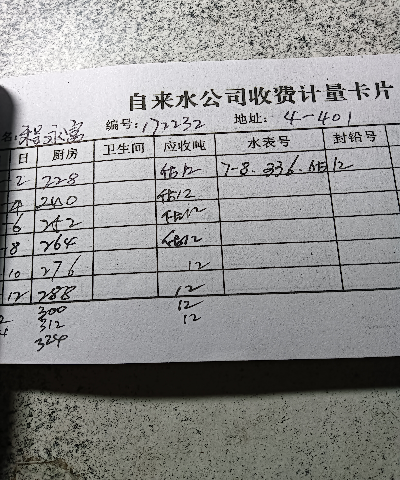 自来水公司收费计量卡片
名: 永富 编号: 172232 地址: 4-401
日 厨房 卫生间 应收吨 水表号 封铅号
2 228 估12 7-8. 336. 估12
4 240 估12
6 252 估12
8 264 估12
10 276 12
12 288 12
2 300 12
4 312 12
324